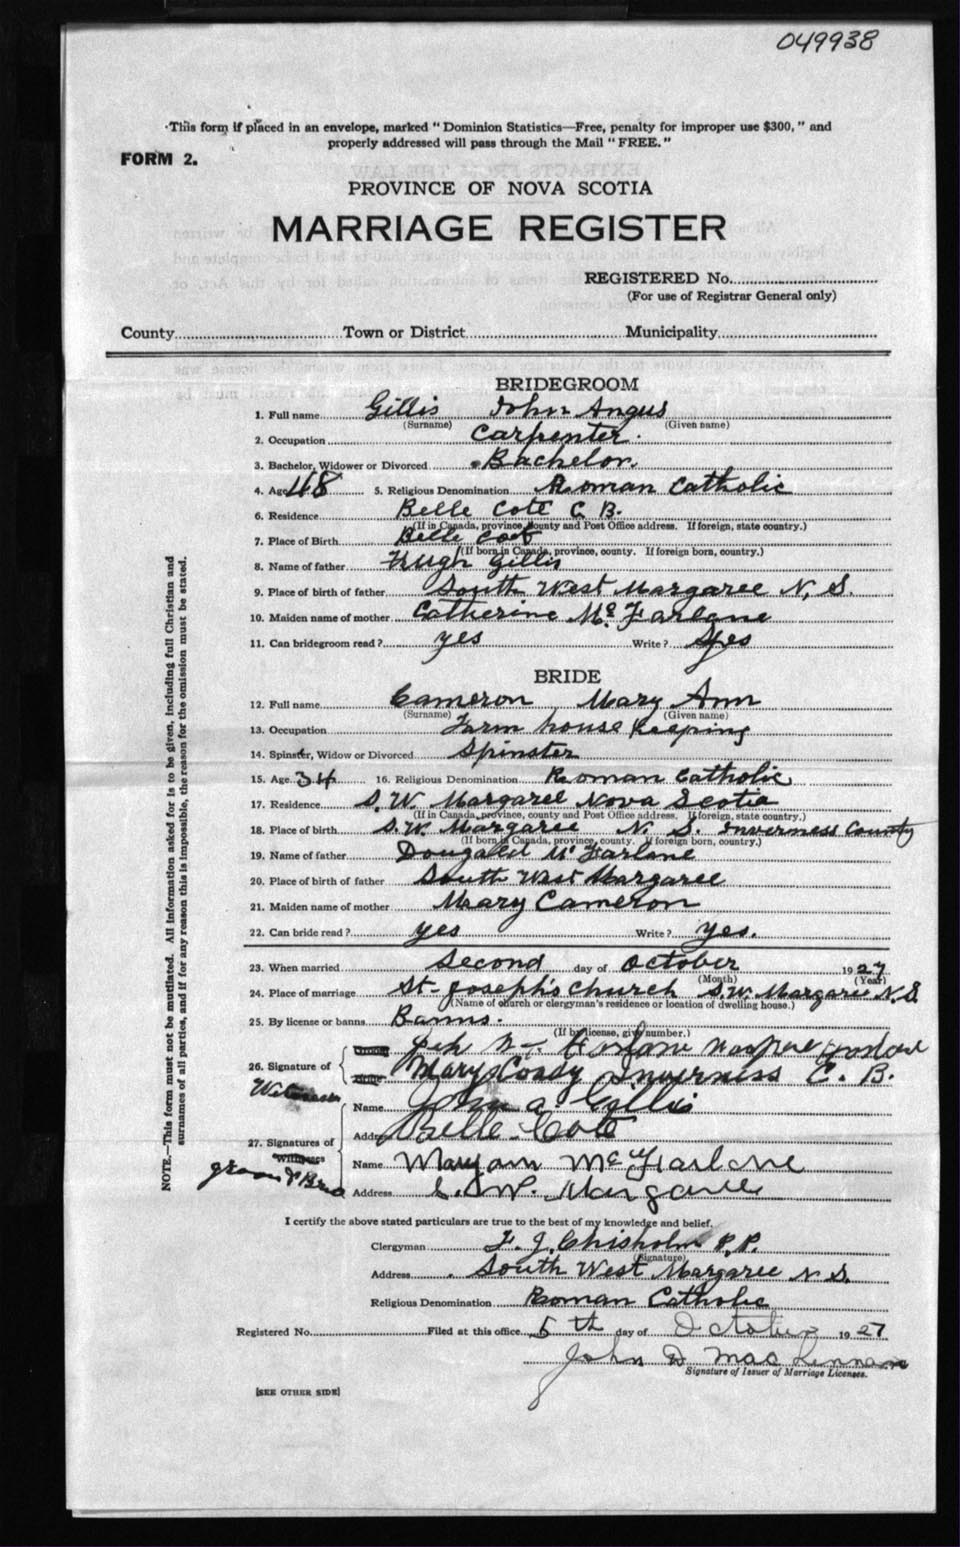 049938
This form if placed in an envelope, marked "Dominion Statistics—Free, penalty for improper use $300," and
properly addressed will pass through the Mail "FREE."
FORM 2.
PROVINCE OF NOVA SCOTIA
MARRIAGE REGISTER
REGISTERED No.
(For use of Registrar General only)
County Town or District Municipality
BRIDEGROOM
1. Full name Gillis John Angus
(Surname) (Given name)
2. Occupation Carpenter.
3. Bachelor, Widower or Divorced Bachelor.
4. Age 48 5. Religious Denomination Roman Catholic
6. Residence Belle Cote C. B.
(If in Canada, province, county and Post Office address. If foreign, state country.)
7. Place of Birth Belle Cote
(If born in Canada, province, county. If foreign born, country.)
8. Name of father Hugh Gillis
9. Place of birth of father South West Margaree N, S.
10. Maiden name of mother Catherine Mc Farlane
11. Can bridegroom read? yes Write? yes
BRIDE
12. Full name Cameron Mary Ann
(Surname) (Given name)
13. Occupation Farm house keeping
14. Spinster, Widow or Divorced Spinster
15. Age 34 16. Religious Denomination Roman Catholic
17. Residence S. W. Margaree Nova Scotia
(If in Canada, province, county and Post Office address. If foreign, state country.)
18. Place of birth S. W. Margaree N. S. Inverness County
(If born in Canada, province, county. If foreign born, country.)
19. Name of father Dougald Mc Farlane
20. Place of birth of father South West Margaree
21. Maiden name of mother Mary Cameron
22. Can bride read? yes Write? yes.
23. When married Second day of October 1927
(Month) (Year)
24. Place of marriage St- Joseph's Church S. W. Margaree N. S
(Name of church or clergyman's residence or location of dwelling house.)
25. By license or banns Banns.
(If by license, give number.)
26. Signature of
Mary Coady Inverness C. B.
Witnesses
Name John a. Gillis
Address Belle-Cote
27. Signatures of Witnesses
groom & Bride
Name Maryann McFarlane
Address S. W. Margaree
I certify the above stated particulars are true to the best of my knowledge and belief.
Clergyman F. J. Chisholm P. P.
(Signature)
Address South West Margaree N S.
Religious Denomination Roman Catholic
Registered No. Filed at this office 5th day of October 1927
John D MacLennan
Signature of Issuer of Marriage Licenses.
[SEE OTHER SIDE]
NOTE.—This form must not be mutilated. All information asked for is to be given, including full Christian and
surnames of all parties, and if for any reason this is impossible, the reason for the omission must be stated.